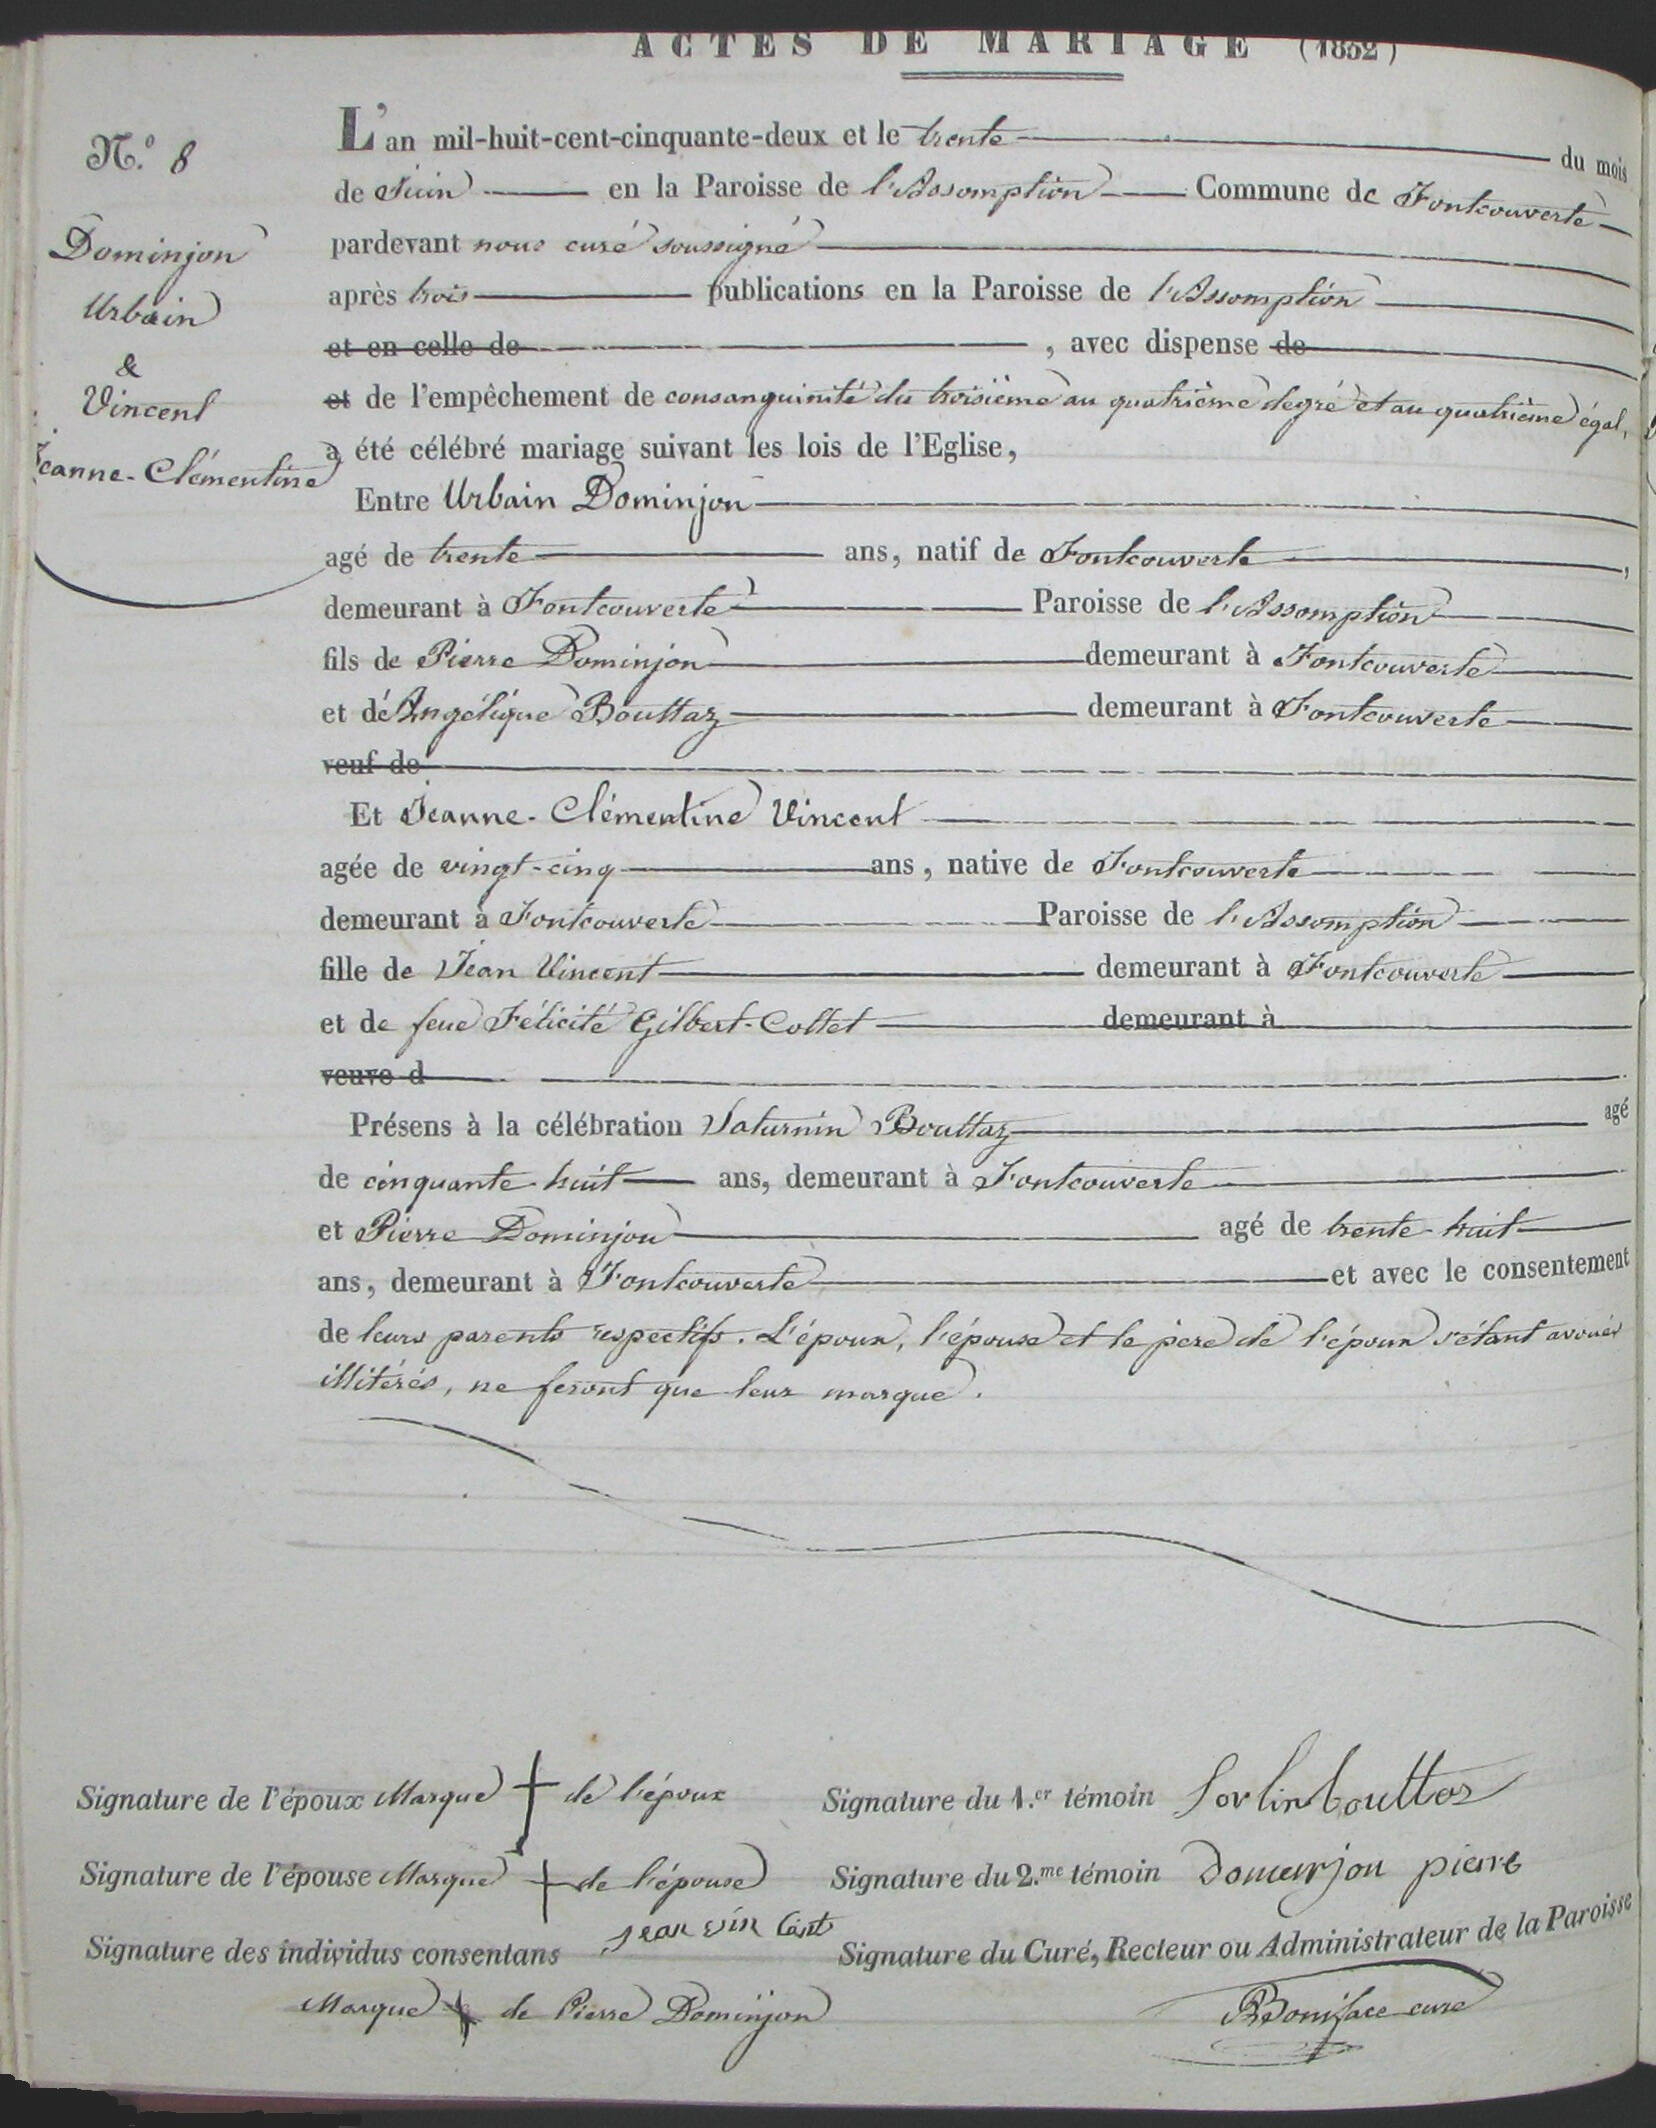 ACTES DE MARIAGE (1852)
N.º 8
Dominjon
Urbain
&
Vincent
Jeanne-Clémentine
L'an mil-huit-cent-cinquante-deux et le trente du mois
de Juin en la Paroisse de l'Assomption Commune de Fontcouverte
pardevant nous curé soussigné
après trois publications en la Paroisse de l'Assomption
et en celle de , avec dispense de
et de l'empêchement de consanguinité du troisième au quatrième degré et au quatrième égal,
a été célébré mariage suivant les lois de l'Eglise,
Entre Urbain Dominjon
agé de trente ans, natif de Fontcouverte ,
demeurant à Fontcouverte Paroisse de l'Assomption
fils de Pierre Dominjon demeurant à Fontcouverte
et d'Angélique Bouttaz demeurant à Fontcouverte
veuf de
Et Jeanne-Clémentine Vincent
agée de vingt-cinq ans, native de Fontcouverte
demeurant à Fontcouverte Paroisse de l'Assomption
fille de Jean Vincent demeurant à Fontcouverte
et de feue Félicité Gilbert-Collet demeurant à
veuve d
Présens à la célébration Saturnin Bouttaz agé
de cinquante-huit ans, demeurant à Fontcouverte
et Pierre Dominjon agé de trente-huit
ans, demeurant à Fontcouverte et avec le consentement
de leurs parents respectifs. L'époux, l'épouse et le père de l'époux s'étant avoués
illitérés, ne feront que leur marque.
Signature de l'époux Marque de l'époux
Signature du 1.er témoin Sorlin bouttaz
Signature de l'épouse Marque de l'épouse
Signature du 2.me témoin Domenjon pierre
Signature des individus consentans jean vin cent
Signature du Curé, Recteur ou Administrateur de la Paroisse
Marque de Pierre Dominjon
Boniface curé